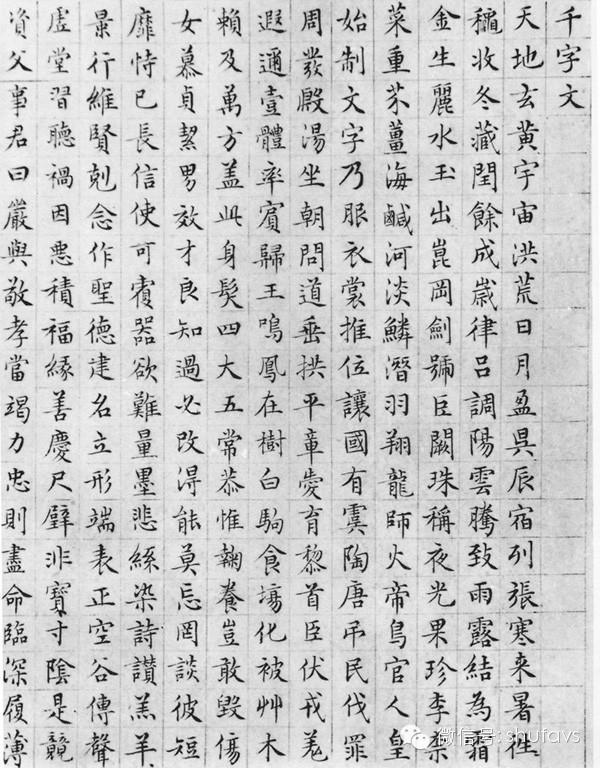 千字文
天地玄黃宇宙洪荒日月盈昃辰宿列張寒来暑往
穐收冬藏閏餘成歲律呂調陽雲騰致雨露結為霜
金生麗水玉出崑岡劍號巨闕珠稱夜光果珍李柰
菜重芥薑海鹹河淡鱗潛羽翔龍師火帝鳥官人皇
始制文字乃服衣裳推位讓國有虞陶唐弔民伐罪
周發殷湯坐朝問道垂拱平章愛育黎首臣伏戎羌
遐邇壹體率賓歸王鳴鳳在樹白駒食場化被艸木
賴及萬方盖此身髮四大五常恭惟鞠養豈敢毀傷
女慕貞絜男效才良知過必改得能莫忘罔談彼短
靡恃己長信使可覆器欲難量墨悲絲染詩讚羔羊
景行維賢剋念作聖德建名立形端表正空谷傳聲
虛堂習聽禍因惡積福緣善慶尺璧非寶寸陰是競
資父事君曰嚴與敬孝當竭力忠則盡命臨深履薄
微信号:shufavs